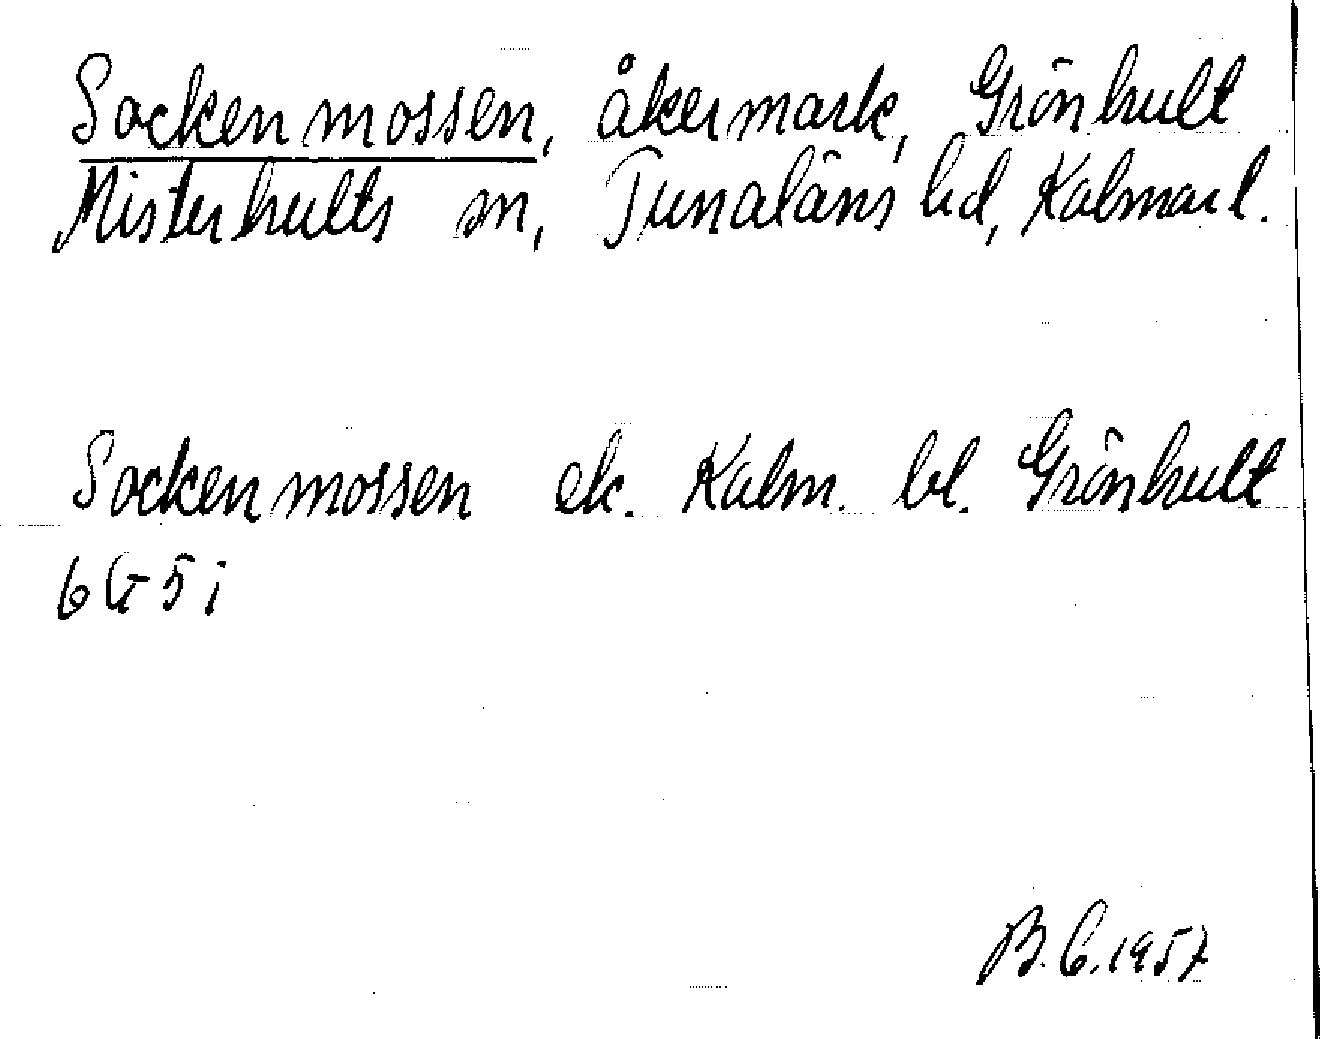 Sockenmossen, åkermark, Grönhult
Misterhults sn, Tunaläns hd, Kalmar l.
Sockenmossen ek. Kalm. bl. Grönhult
6G5i
B.C.1957